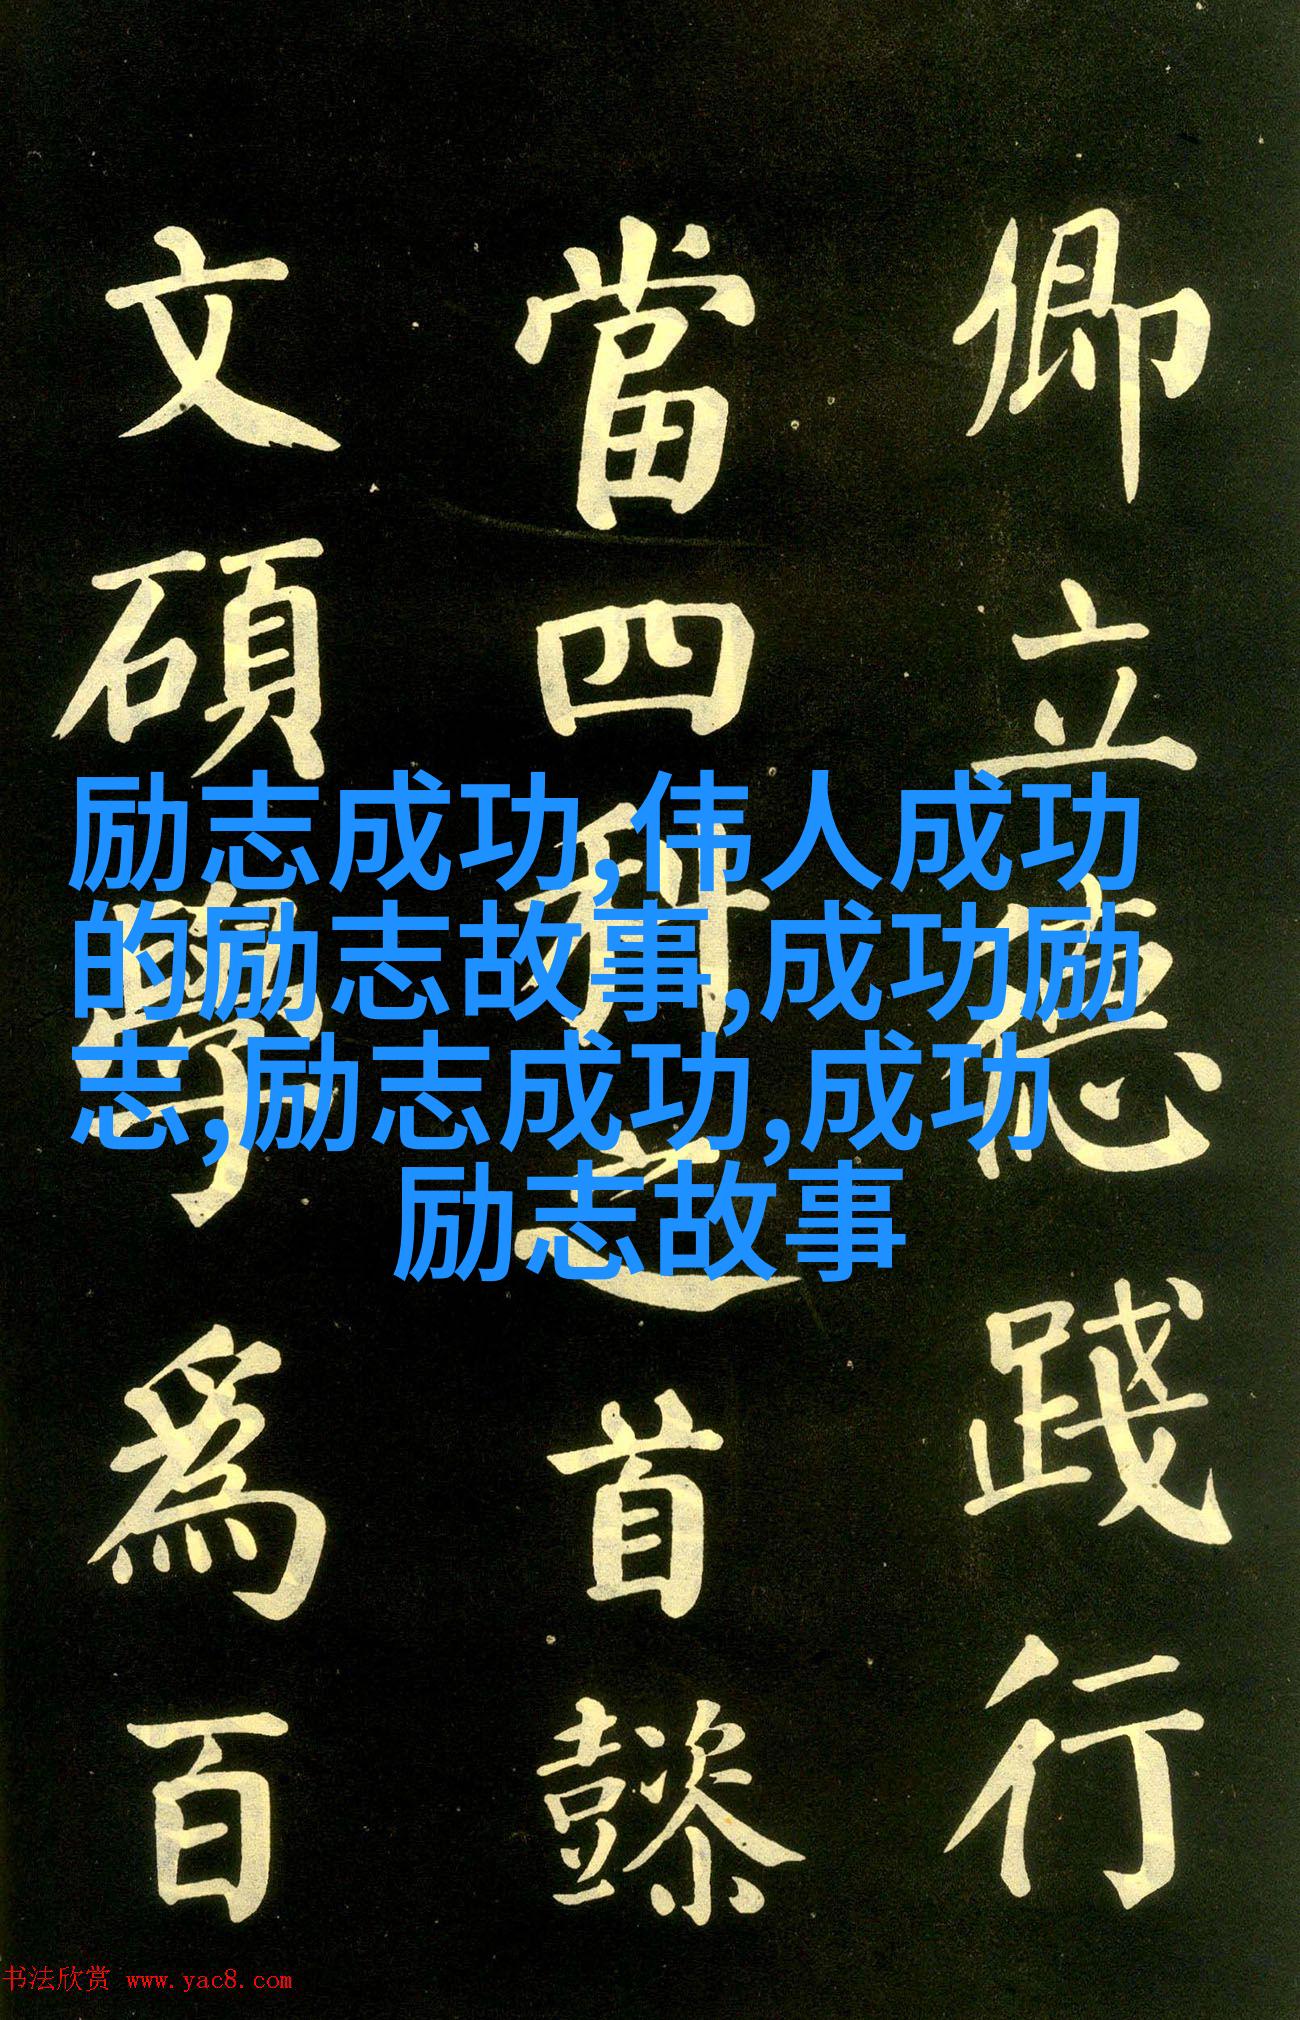 卿立德踐行
當四科之首懿
文碩學為百
励志成功,伟人成功
的励志故事,成功励
志,励志成功,成功
励志故事
书法欣赏 www.yac8.com